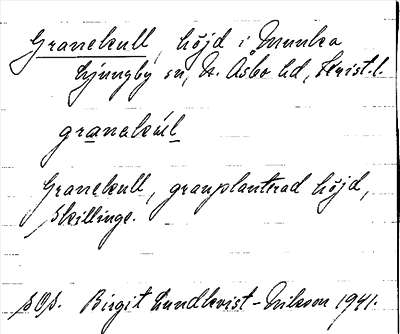 Granekull, höjd i Munka
Ljungby sn, N. Åsbo hd, Krist. l.
granekúl
Granekull, granplanterad höjd,
Skillinge.
Birgit Lundkvist-Nilsson 1941.